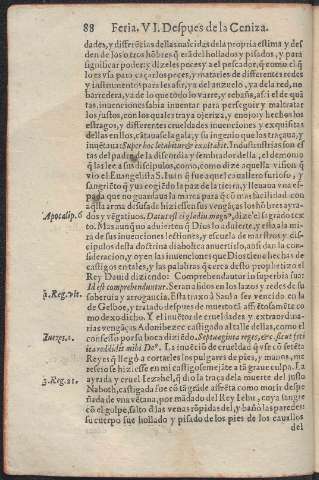 88 Feria. VI. Despues de la Ceniza.
dades, y differẽcias dellas nascidas de la propria estima y des
den de los otros hõbres, q̃ erã del hollados y pisados, y para
significar poder: y dizeles peces y a el pescador, q̃ como el q̃
lo es vsa para caçar los peces, y matarles de differentes redes
y instrumentos para lesasir, ya del anzuelo, ya de la red, no
barredera, ya de lo que todo lo varre, y
tas inuenciones sabia inuentar para perseguir y maltratar
los justos, con los quales traya ojeriza, y enojo: y hechos los
estragos, o differentes crueldades inuenciones y exquisitas
dellas en ellos, cãtaua se la gala, y su ingenio que los traçaua, y
inuẽtaua: Super hoc lætabitur & exultabit. Industrias
tas del padre de la discordia y sembrador della, el demonio
q̃ las lee a sus discipulos, como, como dize aquella vision q̃
vio el Euangelista S. Iuan q̃ fue aquel cauallero furioso, y
sangriẽto q̃ yua cogiẽdo la paz de la tierra, y lleuaua vna es
pada que no guardaua la
aquella arma desuda hiziesse sus vengãças los hõbres ayra-
Apocalip. 6 dos y vẽgatiuos. Datus est ei gladius magnus, dize el sagrado tex
to. Mas aunq̃ no aduierten q̃ Dios lo aduierte, y està a la mi
ra de sus inuenciones lectiones, y escuela de maestros y dis-
cipulos desta doctrina diabolica aduertirlo, assi dan la conside-
racion, y oyen las inuenciones que Dios tiene hechas de
castigos en tales, y las palabras q̃ cerca desto prophetizo el
Rey Dauid diziendo: Comprehendantur in superbia sua:
Id est comprehenduntur. Seran presos en los lazos y redes de su
1. Reg. vlt. soberuia y arrogancia. Esta traxo à Saul a ser vencido en la
de Gelboe, y tratado despues de muerto
mo dexo dicho. Y el inuẽtor de crueldades y extraordina-
rias vengãças Adonibezec castigado al talle dellas, como el
Iueces. 1. confessò por su boca diziẽdo. Septuaginta reges, &c. sicut feci
ita reddidit mihi Ds. La inuẽciõ de crueldad q̃ vse cõ setẽta
Reyes q̃ llegò a cortarles los pulgares de pies, y manos, me
rescio se hiziesse en mi castigo semejãte a tã graue culpa. La
ayrada y cruel Iezabel, q̃ dio la traça de la muerte del justo
3. Reg. 21. Naboth, castigada fue cõ tã grãde afrẽta como morir despe
ñada de vna vẽtana, por mãdado del Rey Iehu, cuya sangre
cõ el golpe, saltò
su cuerpo fue hollado y pisado de los pies de los cauallos
del